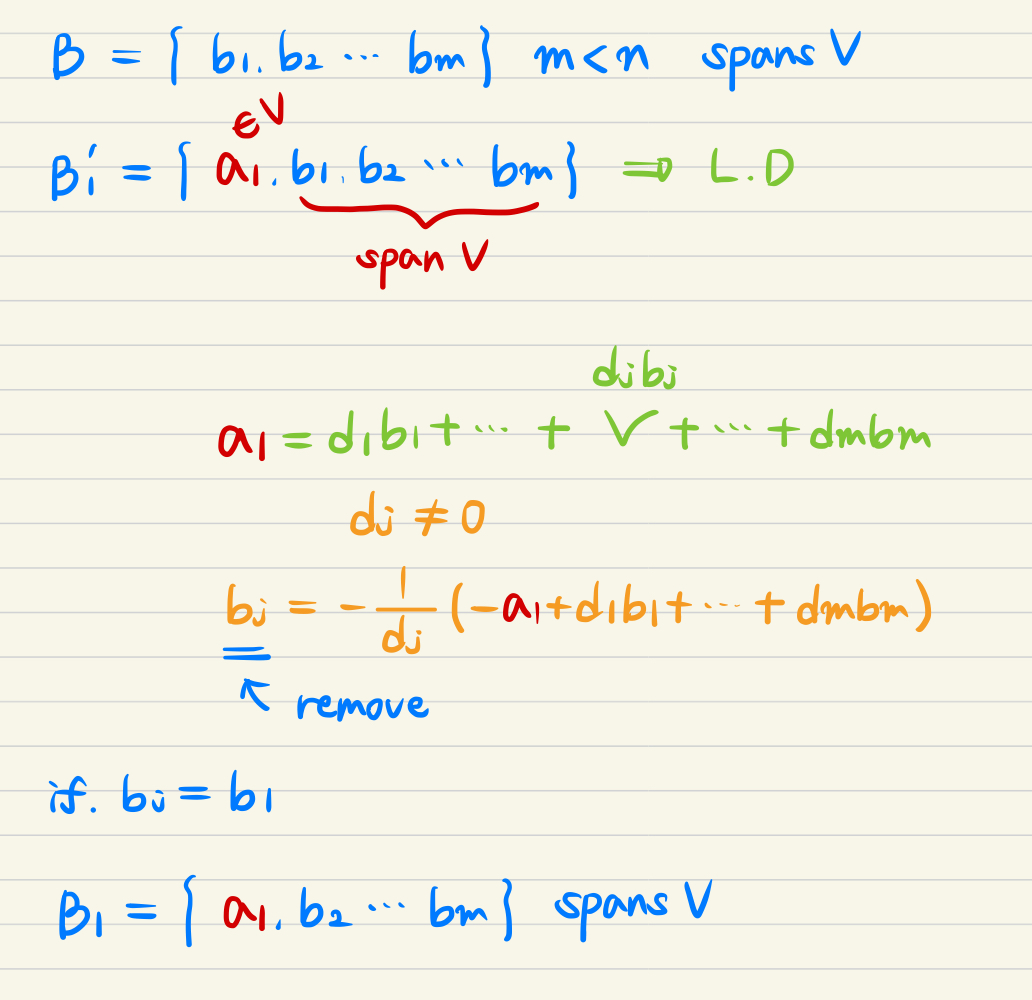 B = { b1. b2 ... bm } m<n spans V
∈V
B1' = { a1. b1. b2 ... bm } ⇒ L.D
span V
djbj
a1 = d1b1 + ... + ∨ + ... + dmbm
dj ≠ 0
bj = - 1/dj (-a1 + d1b1 + ... + dmbm)
↖ remove
if. bj = b1
B1 = { a1. b2 ... bm } spans V